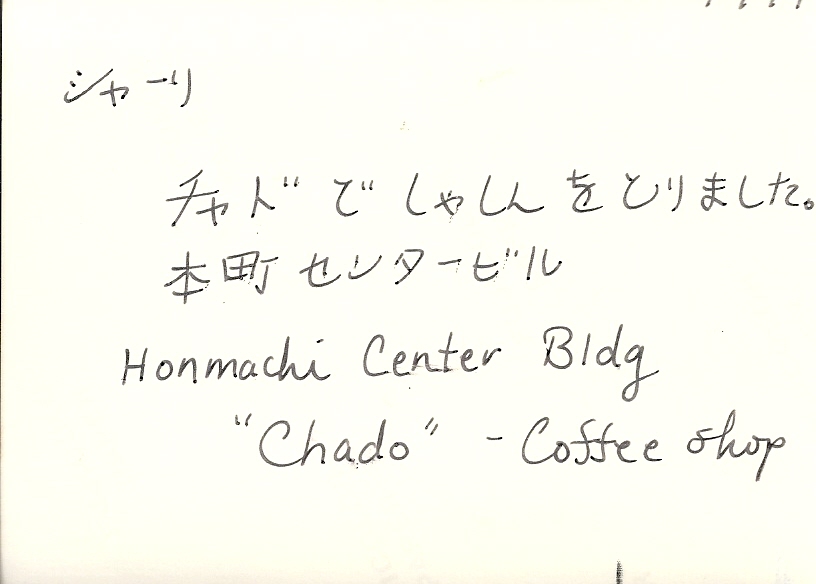 シャーリ
チャドでしゃしんをとりました。
本町センタービル
Honmachi Center Bldg
"Chado" - Coffee shop